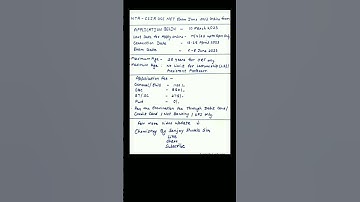 NTA - CSIR UGC NET Exam June 2023 Online form
APPLICATION BEGIN - 10 March 2023
Last Date for Apply Online -
Correction Date - April 2023
Exam Date - 6-8 June 2023
Maximum Age : 28 Years for JRF only
Maximum Age : No limit for
Assistant Professor
Application Fee -
General/EWS - 1100/-
OBC - 550/-
ST/SC - 275/-
PwD - 0/-
Pay the Examination Fee Through Debit Card/
Credit Card / Net Banking / UPI Only
For more Video Update ↓
Chemistry By Sanjay Shukla Sir
Like
Share
Subscribe